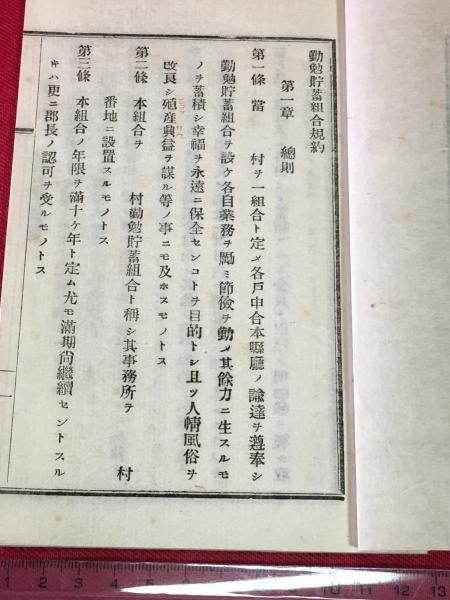 勤勉貯蓄組合規約
第一章　總則
第一條　當　　村ヲ一組合ト定メ各戸申合本縣廳ノ諭達ヲ遵奉シ
勤勉貯蓄組合ヲ設ケ各自業務ヲ勵ミ節儉ヲ勤メ其餘力ニ生スルモ
ノヲ蓄積シ幸福ヲ永遠ニ保全センコトヲ目的トシ且ツ人情風俗ヲ
改良シ殖産興益ヲ謀ル等ノ事ニモ及ホスモノトス
第二條　本組合ヲ　　村勤勉貯蓄組合ト稱シ其事務所ヲ　　村
番地ニ設置スルモノトス
第三條　本組合ノ年限ヲ滿十ケ年ト定ム尤モ滿期尙繼續セントスル
キハ更ニ郡長ノ認可ヲ受ルモノトス
1 2 3 4 5 6 7 8 9 10 11 12 13